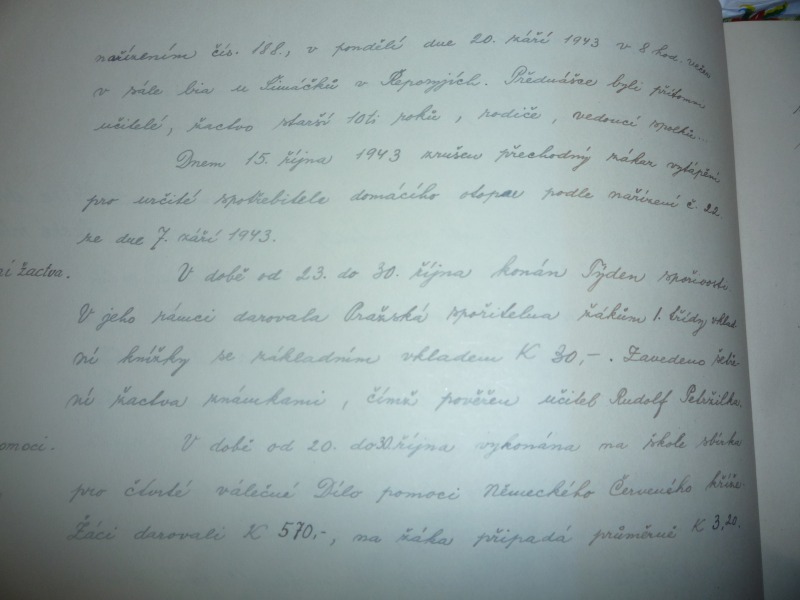 nařízením čís. 188., v pondělí dne 20. září 1943 v 8 hod. večer
v sále bia u Šimáčků v Řeporyjích. Přednášce byli přítomni
učitelé, žactvo starší 10ti roků, rodiče, vedoucí spolků...
Dnem 15. října 1943 zrušen přechodný zákaz vytápění
pro určité spotřebitele domácího otopu podle nařízení č. 22
ze dne 7. září 1943.
ní žactva.
V době od 23. do 30. října konán Týden spořivosti.
V jeho rámci darovala Pražská spořitelna žákům 1. třídy vklad
ní knížky se základním vkladem K 30,-. Zavedeno šetře-
ní žactva známkami, čímž pověřen učitel Rudolf Petržilka.
omoci.
V době od 20. do 30. října vykonána na škole sbírka
pro čtvrté válečné Dílo pomoci Německého Červeného kříže.
Žáci darovali K 570,-, na žáka připadá průměrně K 3,20.